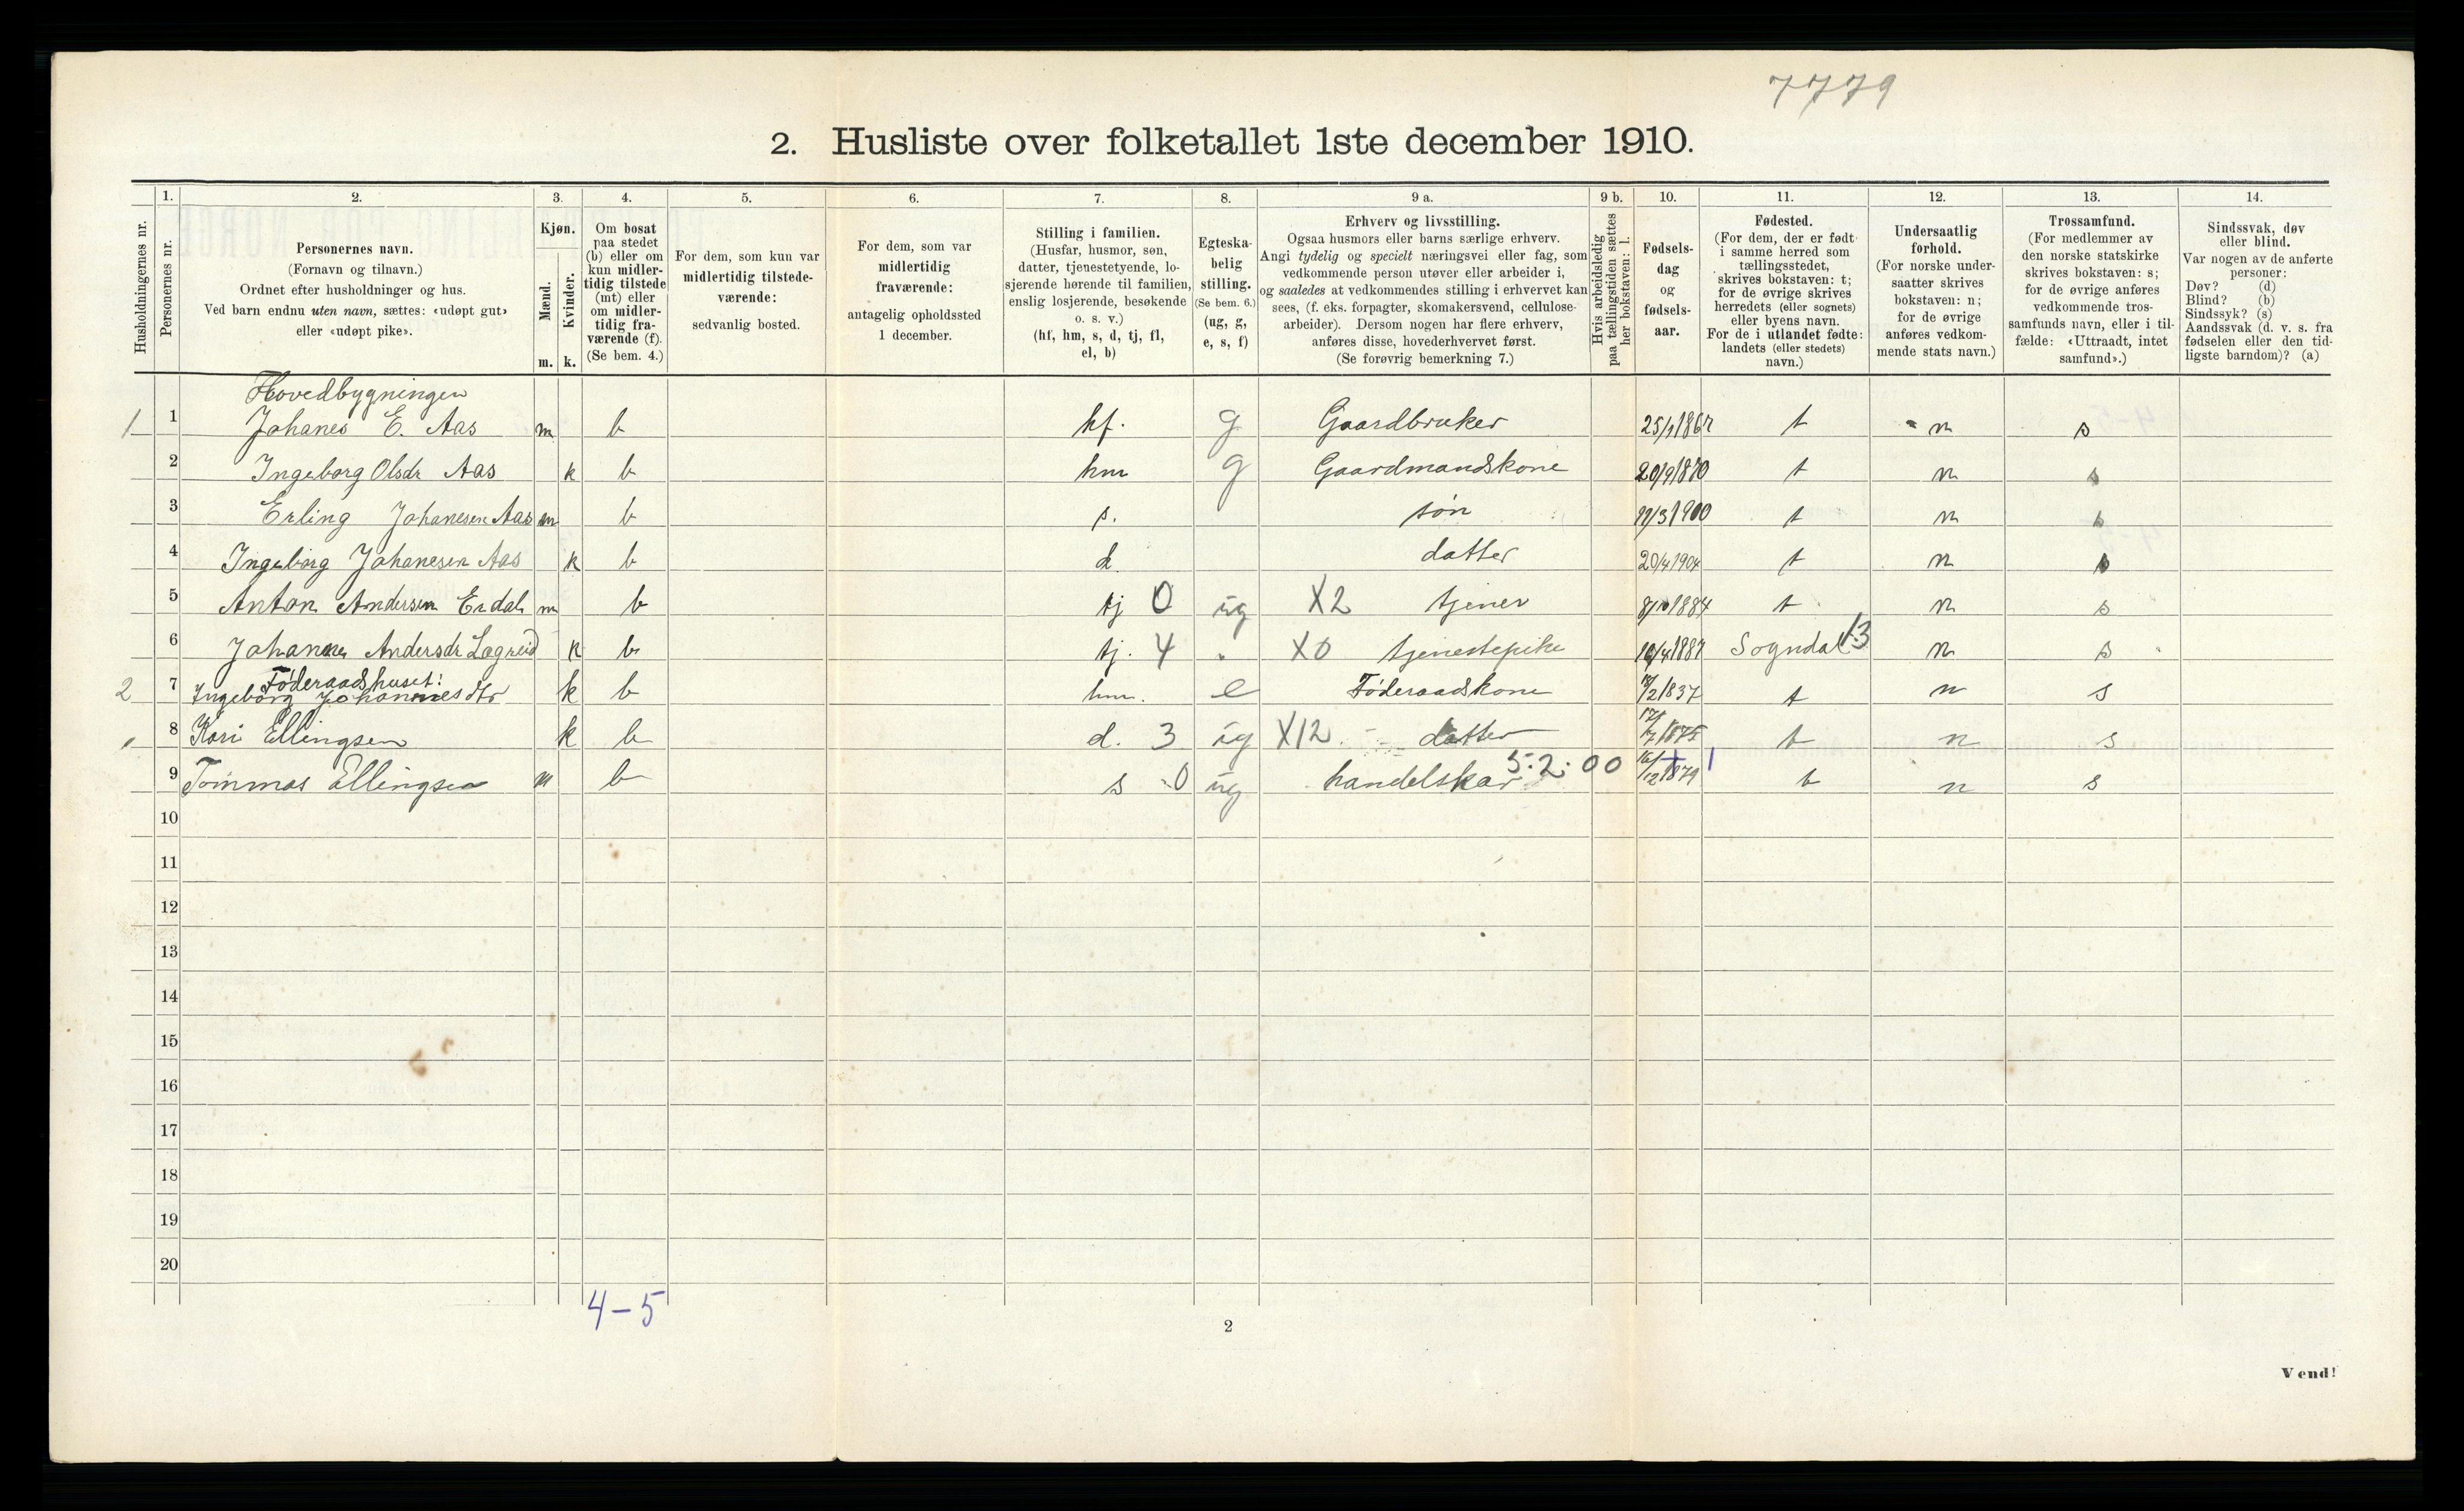 7779
2. Husliste over folketallet 1ste december 1910.
Husholdningernes nr.
1.
Personernes nr.
2.
Personernes navn.
(Fornavn og tilnavn.)
Ordnet efter husholdninger og hus.
Ved barn endnu uten navn, sættes: «udøpt gut»
eller «udøpt pike».
3.
Kjøn.
Mænd.
m.
Kvinder.
k.
4.
Om bosat
paa stedet
(b) eller om
kun midler-
tidig tilstede
(mt) eller
om midler-
tidig fra-
værende (f).
(Se bem. 4.)
5.
For dem, som kun var
midlertidig tilstede-
værende:
sedvanlig bosted.
6.
For dem, som var
midlertidig
fraværende:
antagelig opholdssted
1 december.
7.
Stilling i familien.
(Husfar, husmor, søn,
datter, tjenestetyende, lo-
sjerende hørende til familien,
enslig losjerende, besøkende
o. s. v.)
(hf, hm, s, d, tj, fl,
el, b)
8.
Egteska-
belig
stilling.
(Se bem. 6.)
(ug, g,
e, s, f)
9 a.
Erhverv og livsstilling.
Ogsaa husmors eller barns særlige erhverv.
Angi tydelig og specielt næringsvei eller fag, som
vedkommende person utøver eller arbeider i,
og saaledes at vedkommendes stilling i erhvervet kan
sees, (f. eks. forpagter, skomakersvend, cellulose-
arbeider). Dersom nogen har flere erhverv,
anføres disse, hovederhvervet først.
(Se forøvrig bemerkning 7.)
9 b.
Hvis arbeidsledig
paa tællingstiden sættes
her bokstaven: l.
10.
Fødsels-
dag
og
fødsels-
aar.
11.
Fødested.
(For dem, der er født
i samme herred som
tællingsstedet,
skrives bokstaven: t;
for de øvrige skrives
herredets (eller sognets)
eller byens navn.
For de i utlandet fødte:
landets (eller stedets)
navn.)
12.
Undersaatlig
forhold.
(For norske under-
saatter skrives
bokstaven: n;
for de øvrige
anføres vedkom-
mende stats navn.)
13.
Trossamfund.
(For medlemmer av
den norske statskirke
skrives bokstaven: s;
for de øvrige anføres
vedkommende tros-
samfunds navn, eller i til-
fælde: «Uttraadt, intet
samfund».)
14.
Sindssvak, døv
eller blind.
Var nogen av de anførte
personer:
Døv? (d)
Blind? (b)
Sindssyk? (s)
Aandssvak (d. v. s. fra
fødselen eller den tid-
ligste barndom)? (a)
Hovedbygningen
1 1 Johanes E. Aas m b hf. g Gaardbruker 25/1 1867 t n s
2 Ingeborg Olsdr Aas k b hm g Gaardmandskone 20/9 1870 t n s
3 Erling Johanesen Aas m b s. søn /3 1900 t n s
4 Ingeborg Johanesen Aas k b d datter 20/4 1904 t n s
5 Anton Andersen Erdal m b tj 0 ug X2 tjener 8/10 1884 t n s
6 Johanne Andersdr Lagreid k b tj. 4 " X0 tjenestepike /4 1887 Sogndal 13 n s
Føderaadshuset:
2 7 Ingeborg Johannesdtr k b hm. e Føderaadskone /2 1837 t n s
8 Kari Ellingsen k b d. 3 ug X12 datter 17/7 1875 t n s
9 Tommas Ellingsen m b s 0 ug handelskar 5.2.00 16/12 1879 1 t n s
10
11
12
13
14
15
16
17
18
19
20
4-5
2
Vend!